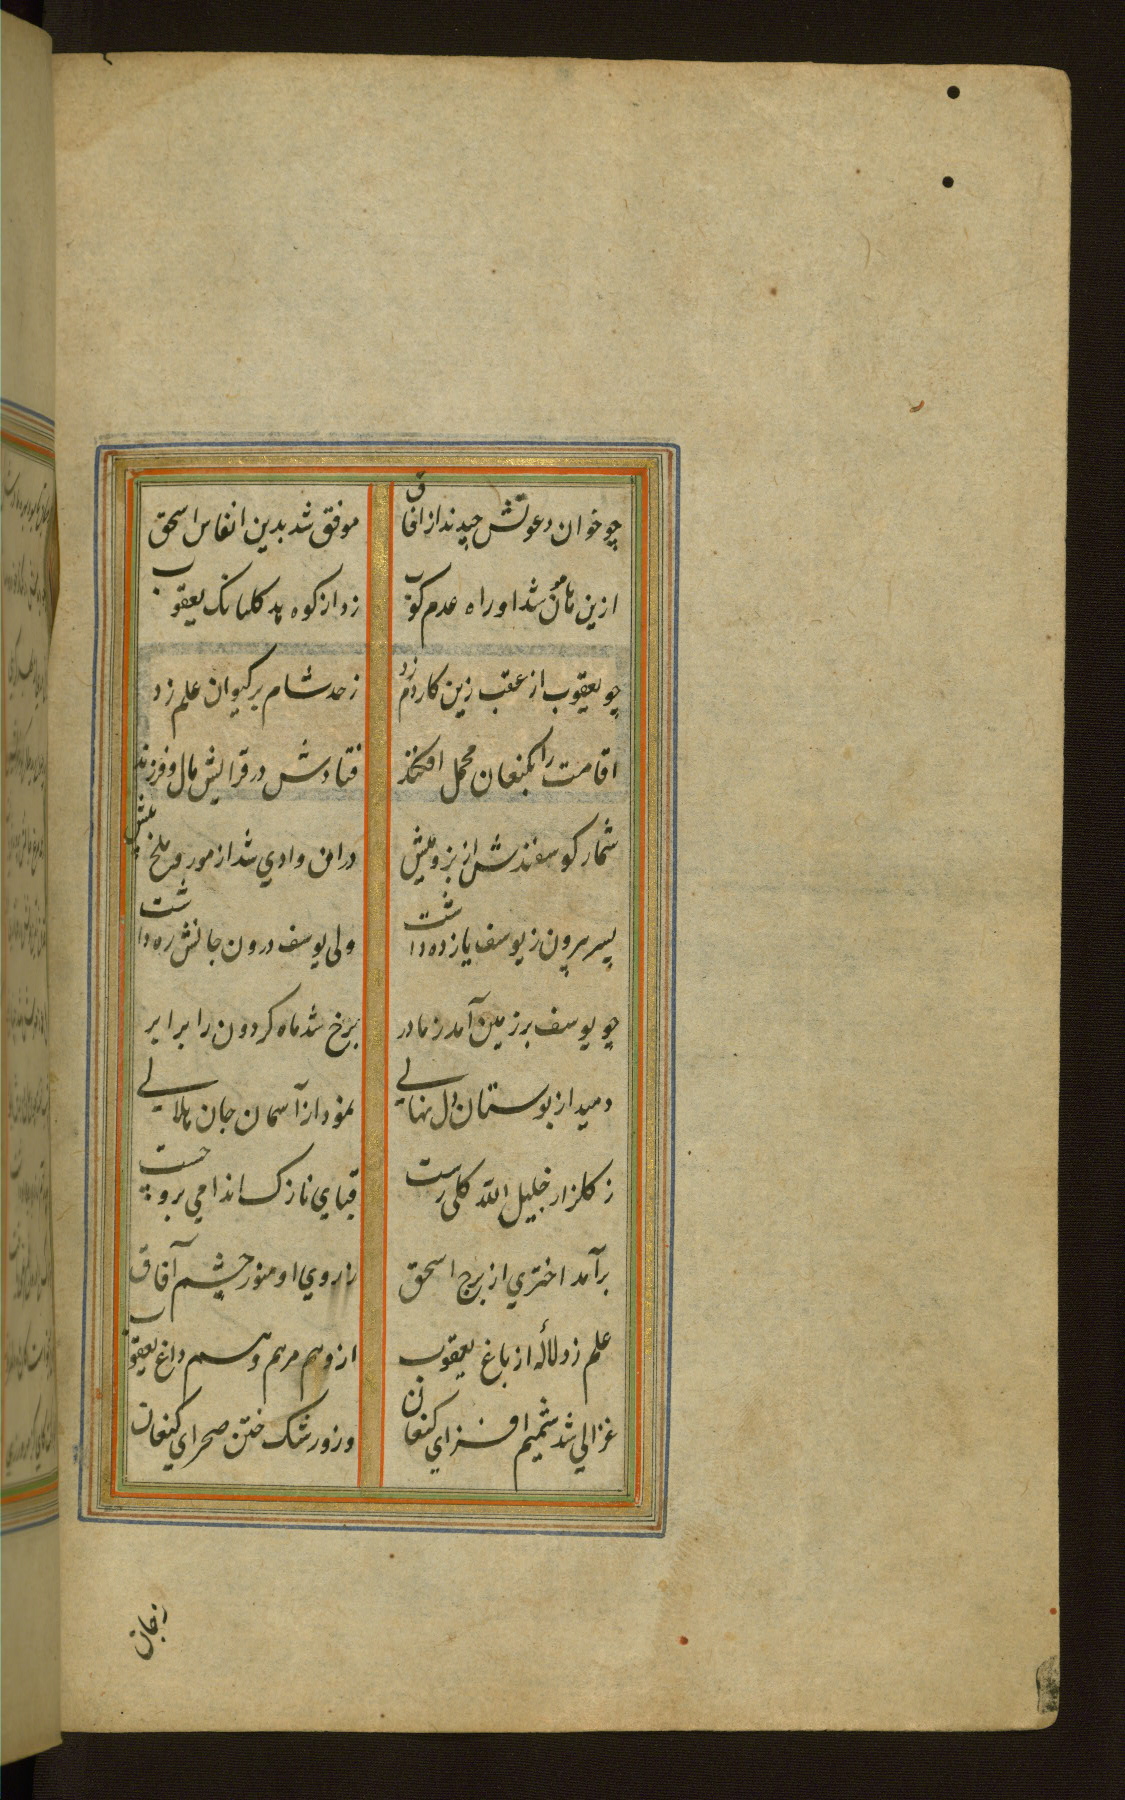 چو خوان دعوتش چیدند از افاق موفق شد بدین انفاس اسحق
ازین هامون شد او راه عدم کوب زد از کوه هد کلبانک یعقوب
چو یعقوب از عقب زین کار دم زد ز حد شام بر کیوان علم زد
اقامت را بکنعان محمل افکند فتادش در فزایش مال و فرزند
شمار کوسفندش از بز و میش در ان وادی شد از مور و ملخ بیش
پسر بیرون ز یوسف یازده داشت ولی یوسف درون جانش ره داشت
چو یوسف بر زمین آمد ز مادر برخ شد ماه کردون را برابر
دمید از بوستان دل نهالی نمود از آسمان جان هلالی
ز کلزار خلیل الله کلی رست قبای نازک اندامی برو چست
برآمد اختری از برج اسحق ز روی او منور چشم آفاق
علم زد لالهٔ از باغ یعقوب ازو هم مرهم و هم داغ یعقوب
غزالی شد شمیم افزای کنعان وزو رشک ختن صحرای کنعان
ز جان